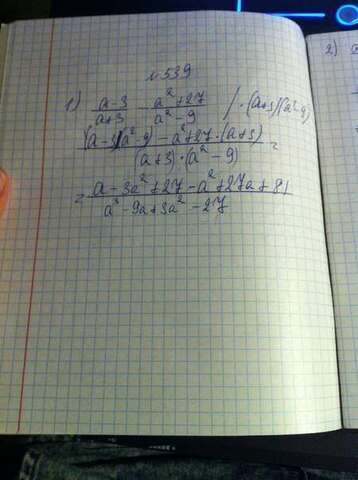 №539
1) a-3/a+3 - a²+27/a²-9 / · (a+3)(a²-9)
(a-3)(a²-9) - a²+27 · (a+3) / (a+3)·(a²-9) =
= a-3a²+27-a²+27a+81 / a³-9a+3a²-27
2)